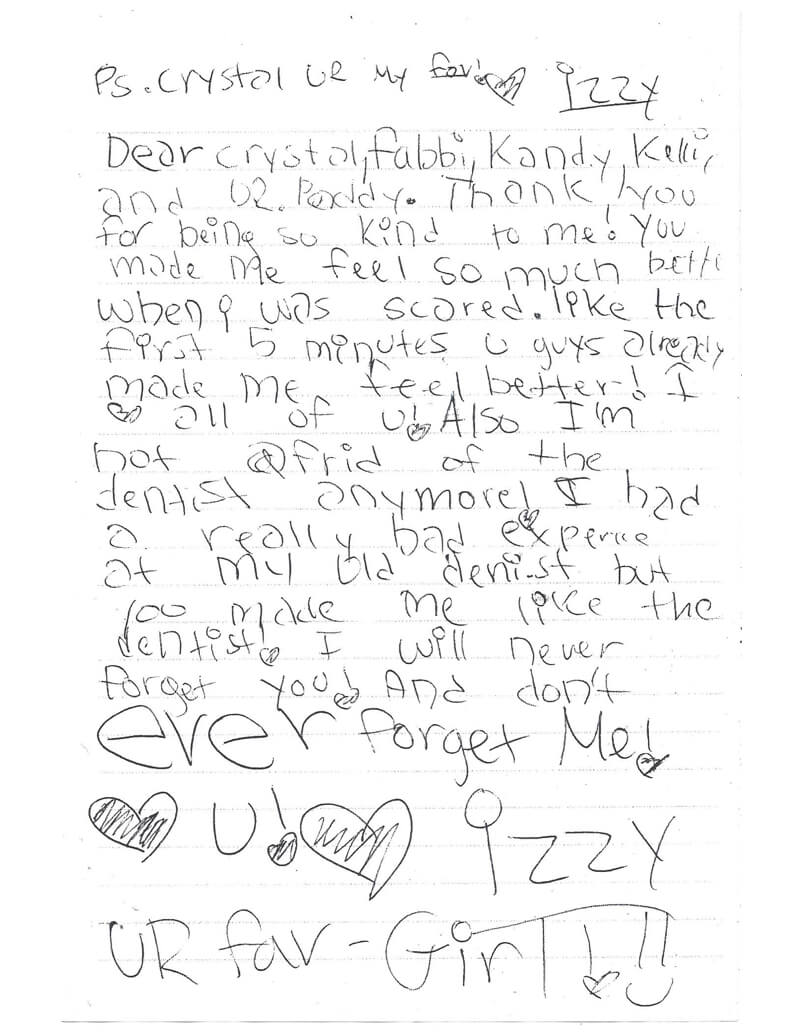 Ps. Crystal UR My fav! izzy
Dear crystal, fabbi, Kandy, Kelli,
and DR. Paddy. Thank you
for being so kind to me! You
made me feel so much bette
when i was scared. like the
first 5 minutes u guys already
made me feel better! I
♥ all of u! Also I'm
not afrid of the
dentist anymore! I had
a really bad experice
at my old denist but
you made me like the
dentist! I will never
forget you! And don't
ever forget Me!
♥ U! ♥ izzy
UR fav-Girl!!!